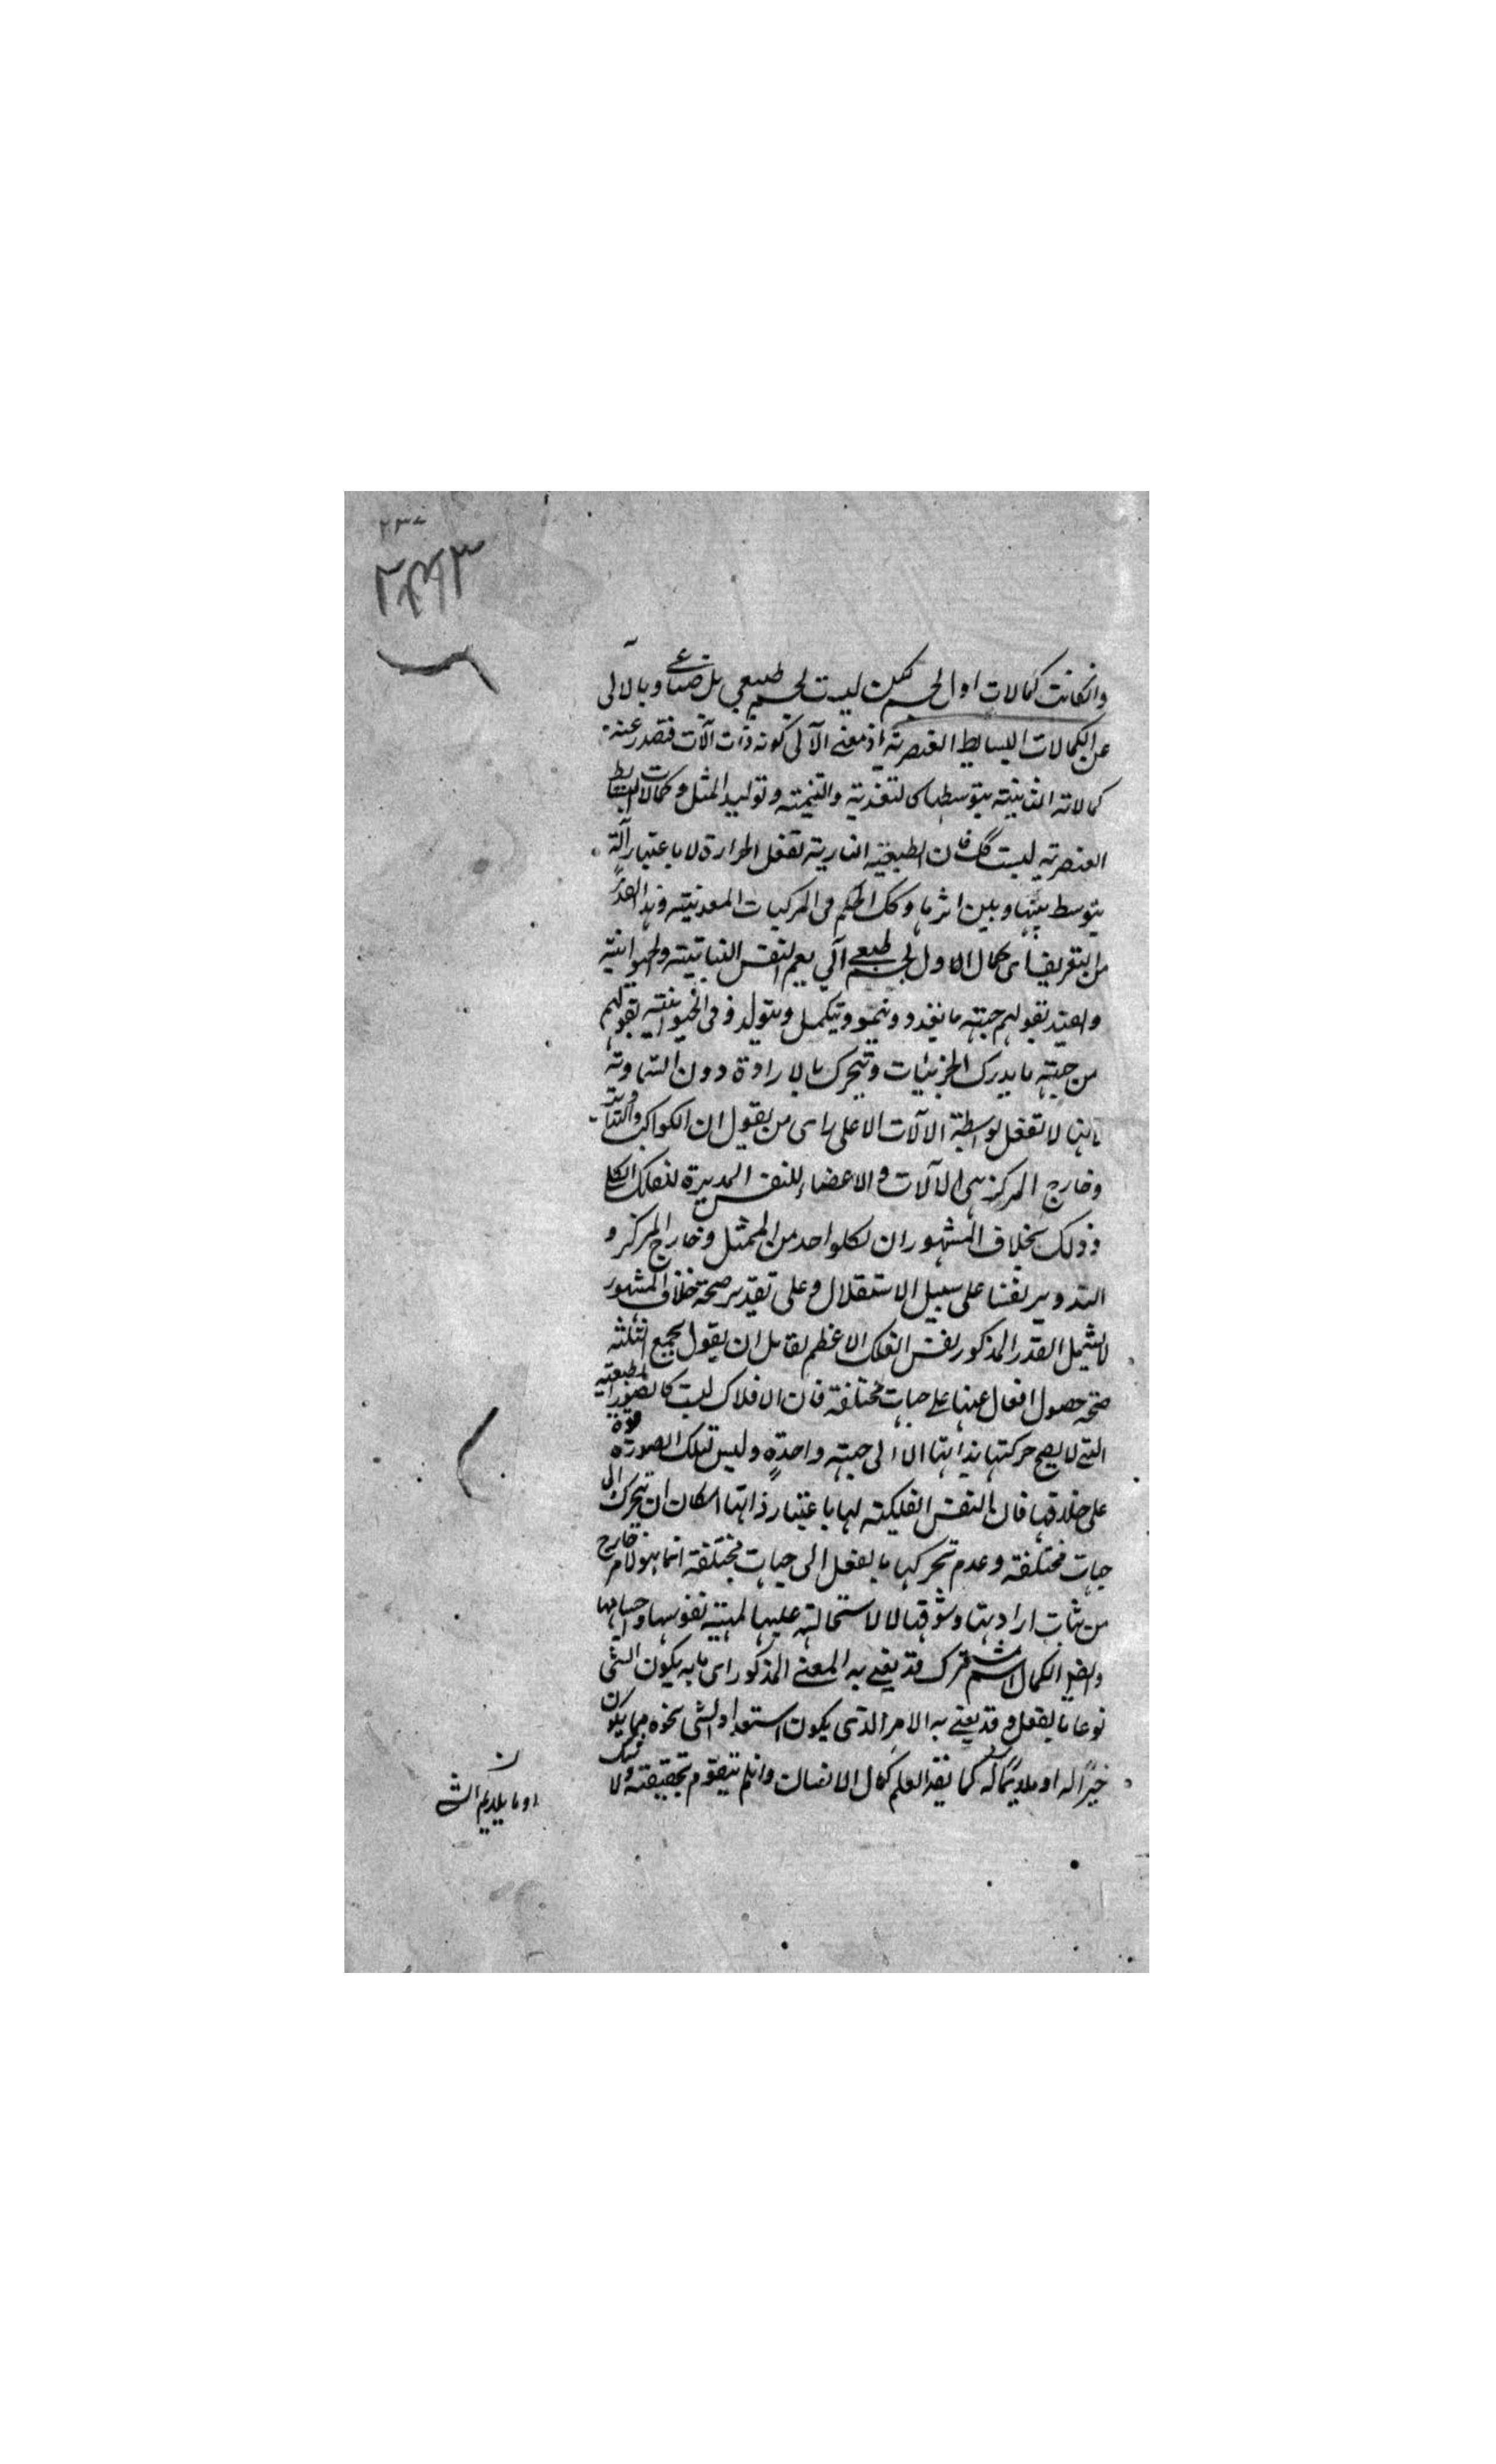 ٢٣٧
وانكانت كمالات اول لجسم لكن ليست لجسم طبيعي بل صناعى وبالآلى
عن الكمالات البسايط العنصرية اذ معنى الآلى كونه ذات آلات فتصدر عنه
كمالاته الثانية بتوسطها كالتغذية والتنمية وتوليد المثل وكمالات البسايط
العنصرية ليست كك فان الطبيعة النارية تفعل الحرارة لا باعتبار آلة
يتوسط بينها وبين اثرها وكك الحكم فى المركبات المعدنية وهذا القدر
من التعريف اى كمال الاول لجسم طبيعى آلى يعم النفس النباتية والحيوانية
بقولهم جهة ما يغدو وينمو ويتكمل ويتولد وفى الحيوانية بقولهم
من جهة ما يدرك الجزئيات وتتحرك بالارادة دون السماوية
فانها لا تفعل بواسطة الآلات الا على راى من يقول ان الكواكب والتداوير
وخارج المركز هى الآلات والاعضاء للنفس المدبرة للفلك الكلى
وذلك بخلاف المشهور ان لكلواحد من الممثل وخارج المركز و
التدوير نفسا على سبيل الاستقلال وعلى تقدير صحة خلاف المشهور
لا يشمل القدر المذكور نفس الفلك الاعظم لقايل ان يقول لجميع الثلثة
صحة حصول افعال عنها على جهات مختلفة فان الافلاك ليست كالصور الطبيعية
التى لا يصح حركتها بذاتها الا الى جهة واحدة وليس لتلك الصورة قوة
على خلافها فان النفس الفلكية لها باعتبار ذاتها امكان ان تتحرك الى
جهات مختلفة وعدم تحركها بالفعل الى جهات مختلفة انما هو لامر خارج
من ثبات ارادتها وشوقها لا لاستحالة عليها لمهية نفوسها واجسامها
وايضا الكمال اسم مشترك قد يعنى به المعنى المذكور اى ما به يكون الشى
نوعا بالفعل وقد يعنى به الامر الذى يكون استعداد الشى نحوه مما يكون
خيرا له او ملايما له كما يقه العلم كمال الانسان وان لم يتقوم بحقيقته ولا شك
او ما يلايم الشى